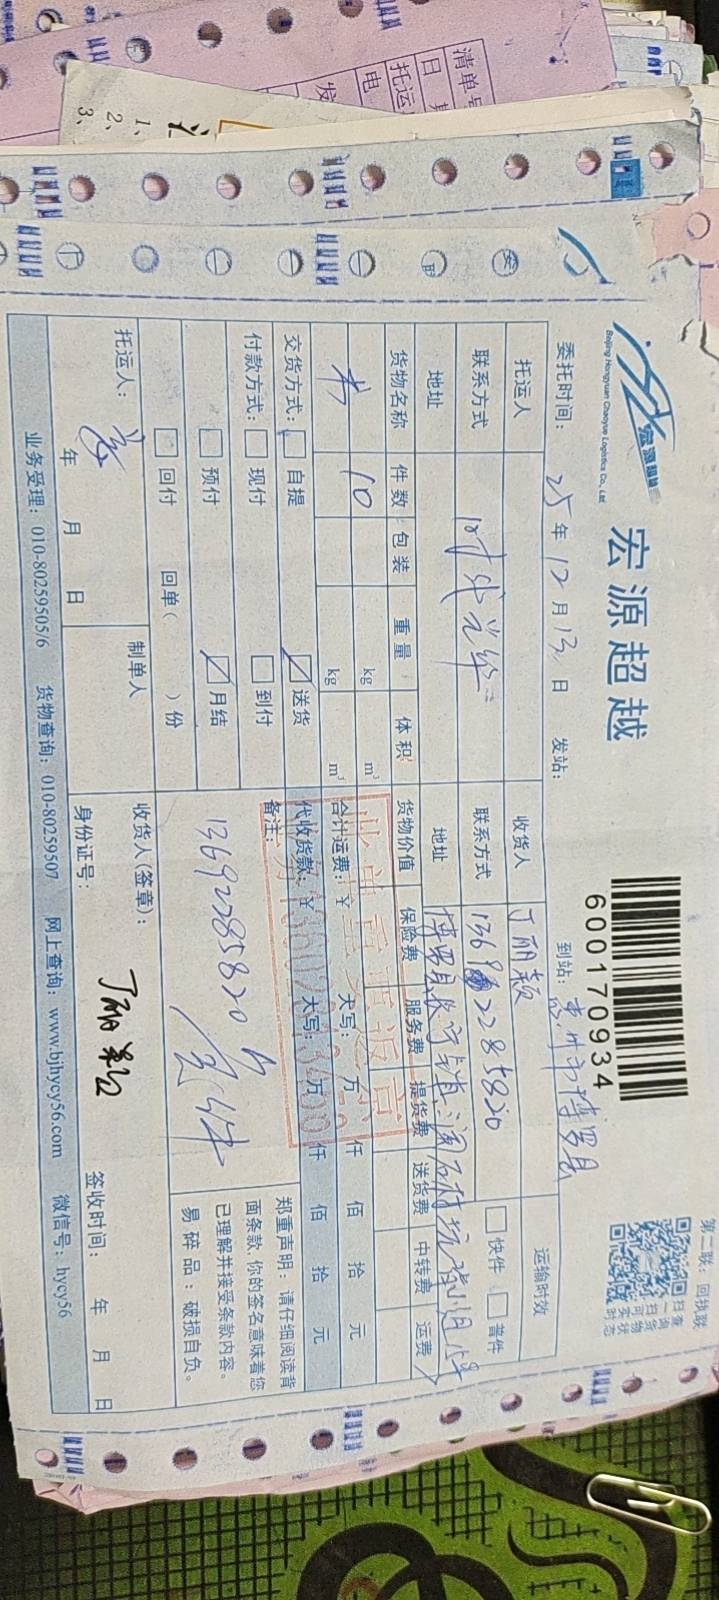 清单号
日 期
托运
电
发
1、
2、
3、
宏源超越
Beijing Hongyuan Chaoyue Logistics Co., Ltd
宏源超越
600170934
第二联：回执联
扫一扫可
查询货物
实时状态
委托时间： 25 年 12 月 13 日 发站： 到站： 惠州市博罗县
托运人 收货人 丁丽颖 运输时效
联系方式 联系方式 13692285820 快件 普件
地址 地址 博罗县
货物名称 件数 包装 重量 体积 货物价值 保险费 服务费 提货费 送货费 中转费 运费
书 10 kg m³
kg m³ 合计运费：￥ 大写： 万 仟 佰 拾 元
交货方式： 自提 送货 代收货款：￥ 大写： 万 仟 佰 拾 元
付款方式： 现付 到付 备注：
预付 月结 13692285820
回付 回单（ ）份
此单重要 返京
郑重声明：请仔细阅读背
面条款，你的签名意味着您
已理解并接受条款内容。
易碎品：破损自负。
托运人： 制单人 收货人(签章)： 丁丽颖 签收时间：
年 月 日 身份证号： 年 月 日
业务受理：010-80259505/6 货物查询：010-80259507 网上查询：www.bjhycy56.com 微信号：hycy56